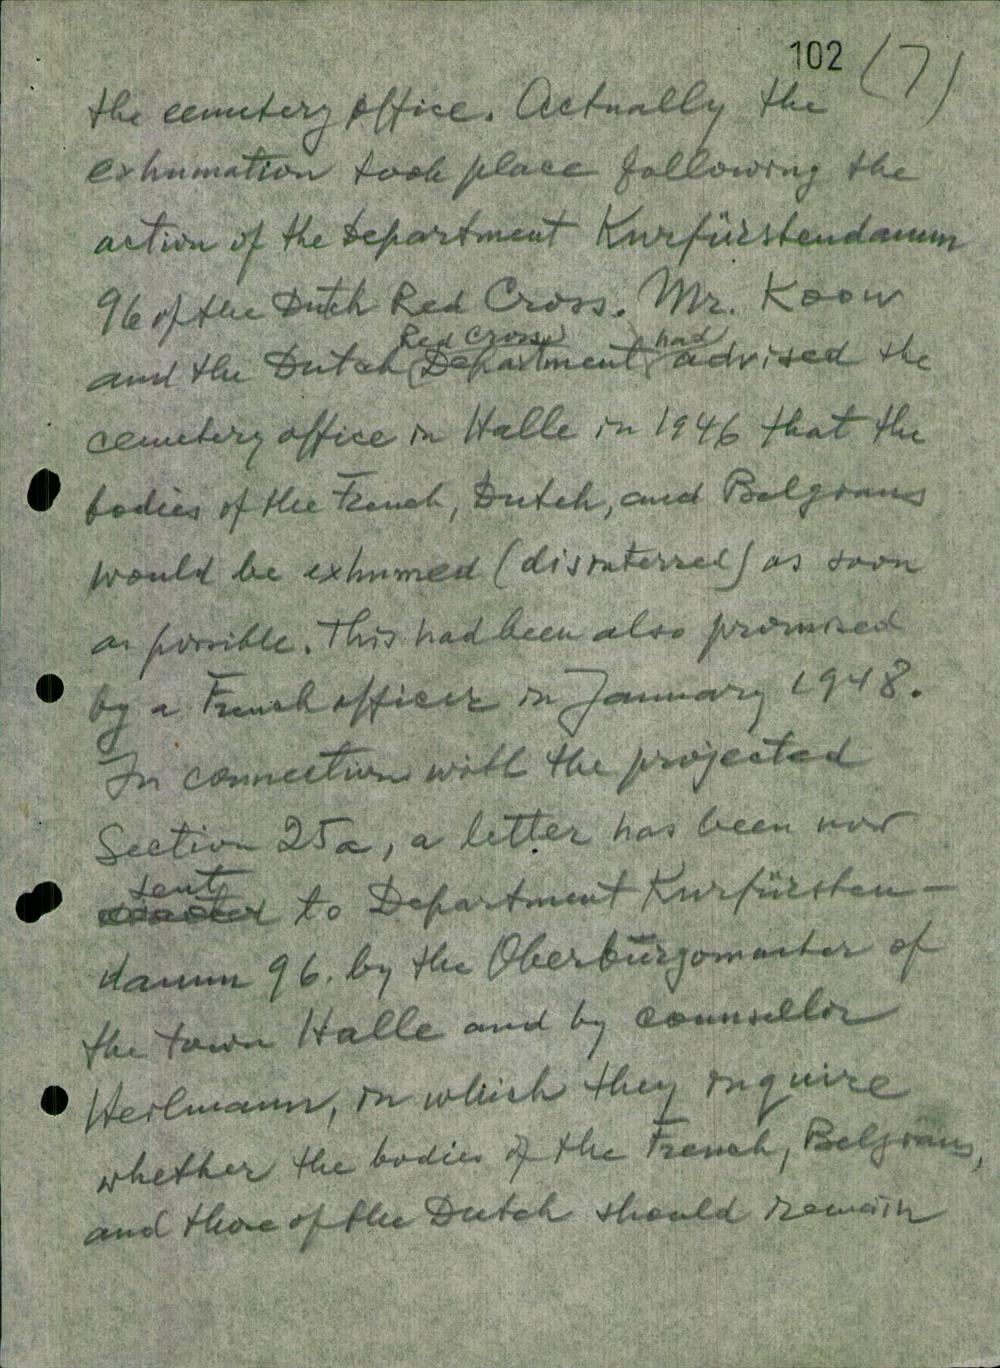 102 (7)
the cemetery office. Actually the
exhumation took place following the
action of the Department Kurfürstendamm
96 of the Dutch Red Cross. Mr. Koow
Red Cross had
and the Dutch (Department) advised the
cemetery office in Halle in 1946 that the
bodies of the French, Dutch, and Belgians
would be exhumed (disinterred) as soon
as possible. This had been also promised
by a French officer in January 1948.
In connection with the projected
Section 25a, a letter has been now
sent
to Department Kurfürsten-
damm 96. by the Oberbürgomaster of
the town Halle and by counsellor
Heilmann, in which they inquire
whether the bodies of the French, Belgians,
and those of the Dutch should remain